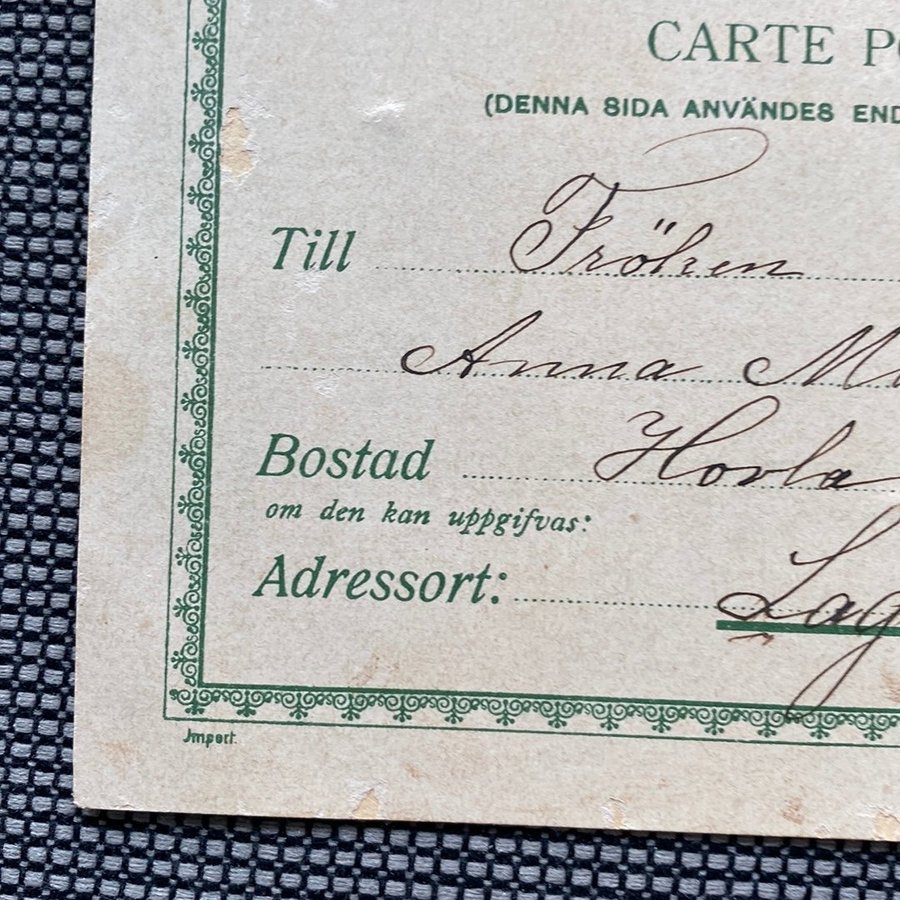 CARTE PO
(DENNA SIDA ANVÄNDES END
Till Fröken
Anna M
Bostad Hovla
om den kan uppgifvas:
Adressort: Lag
Import.